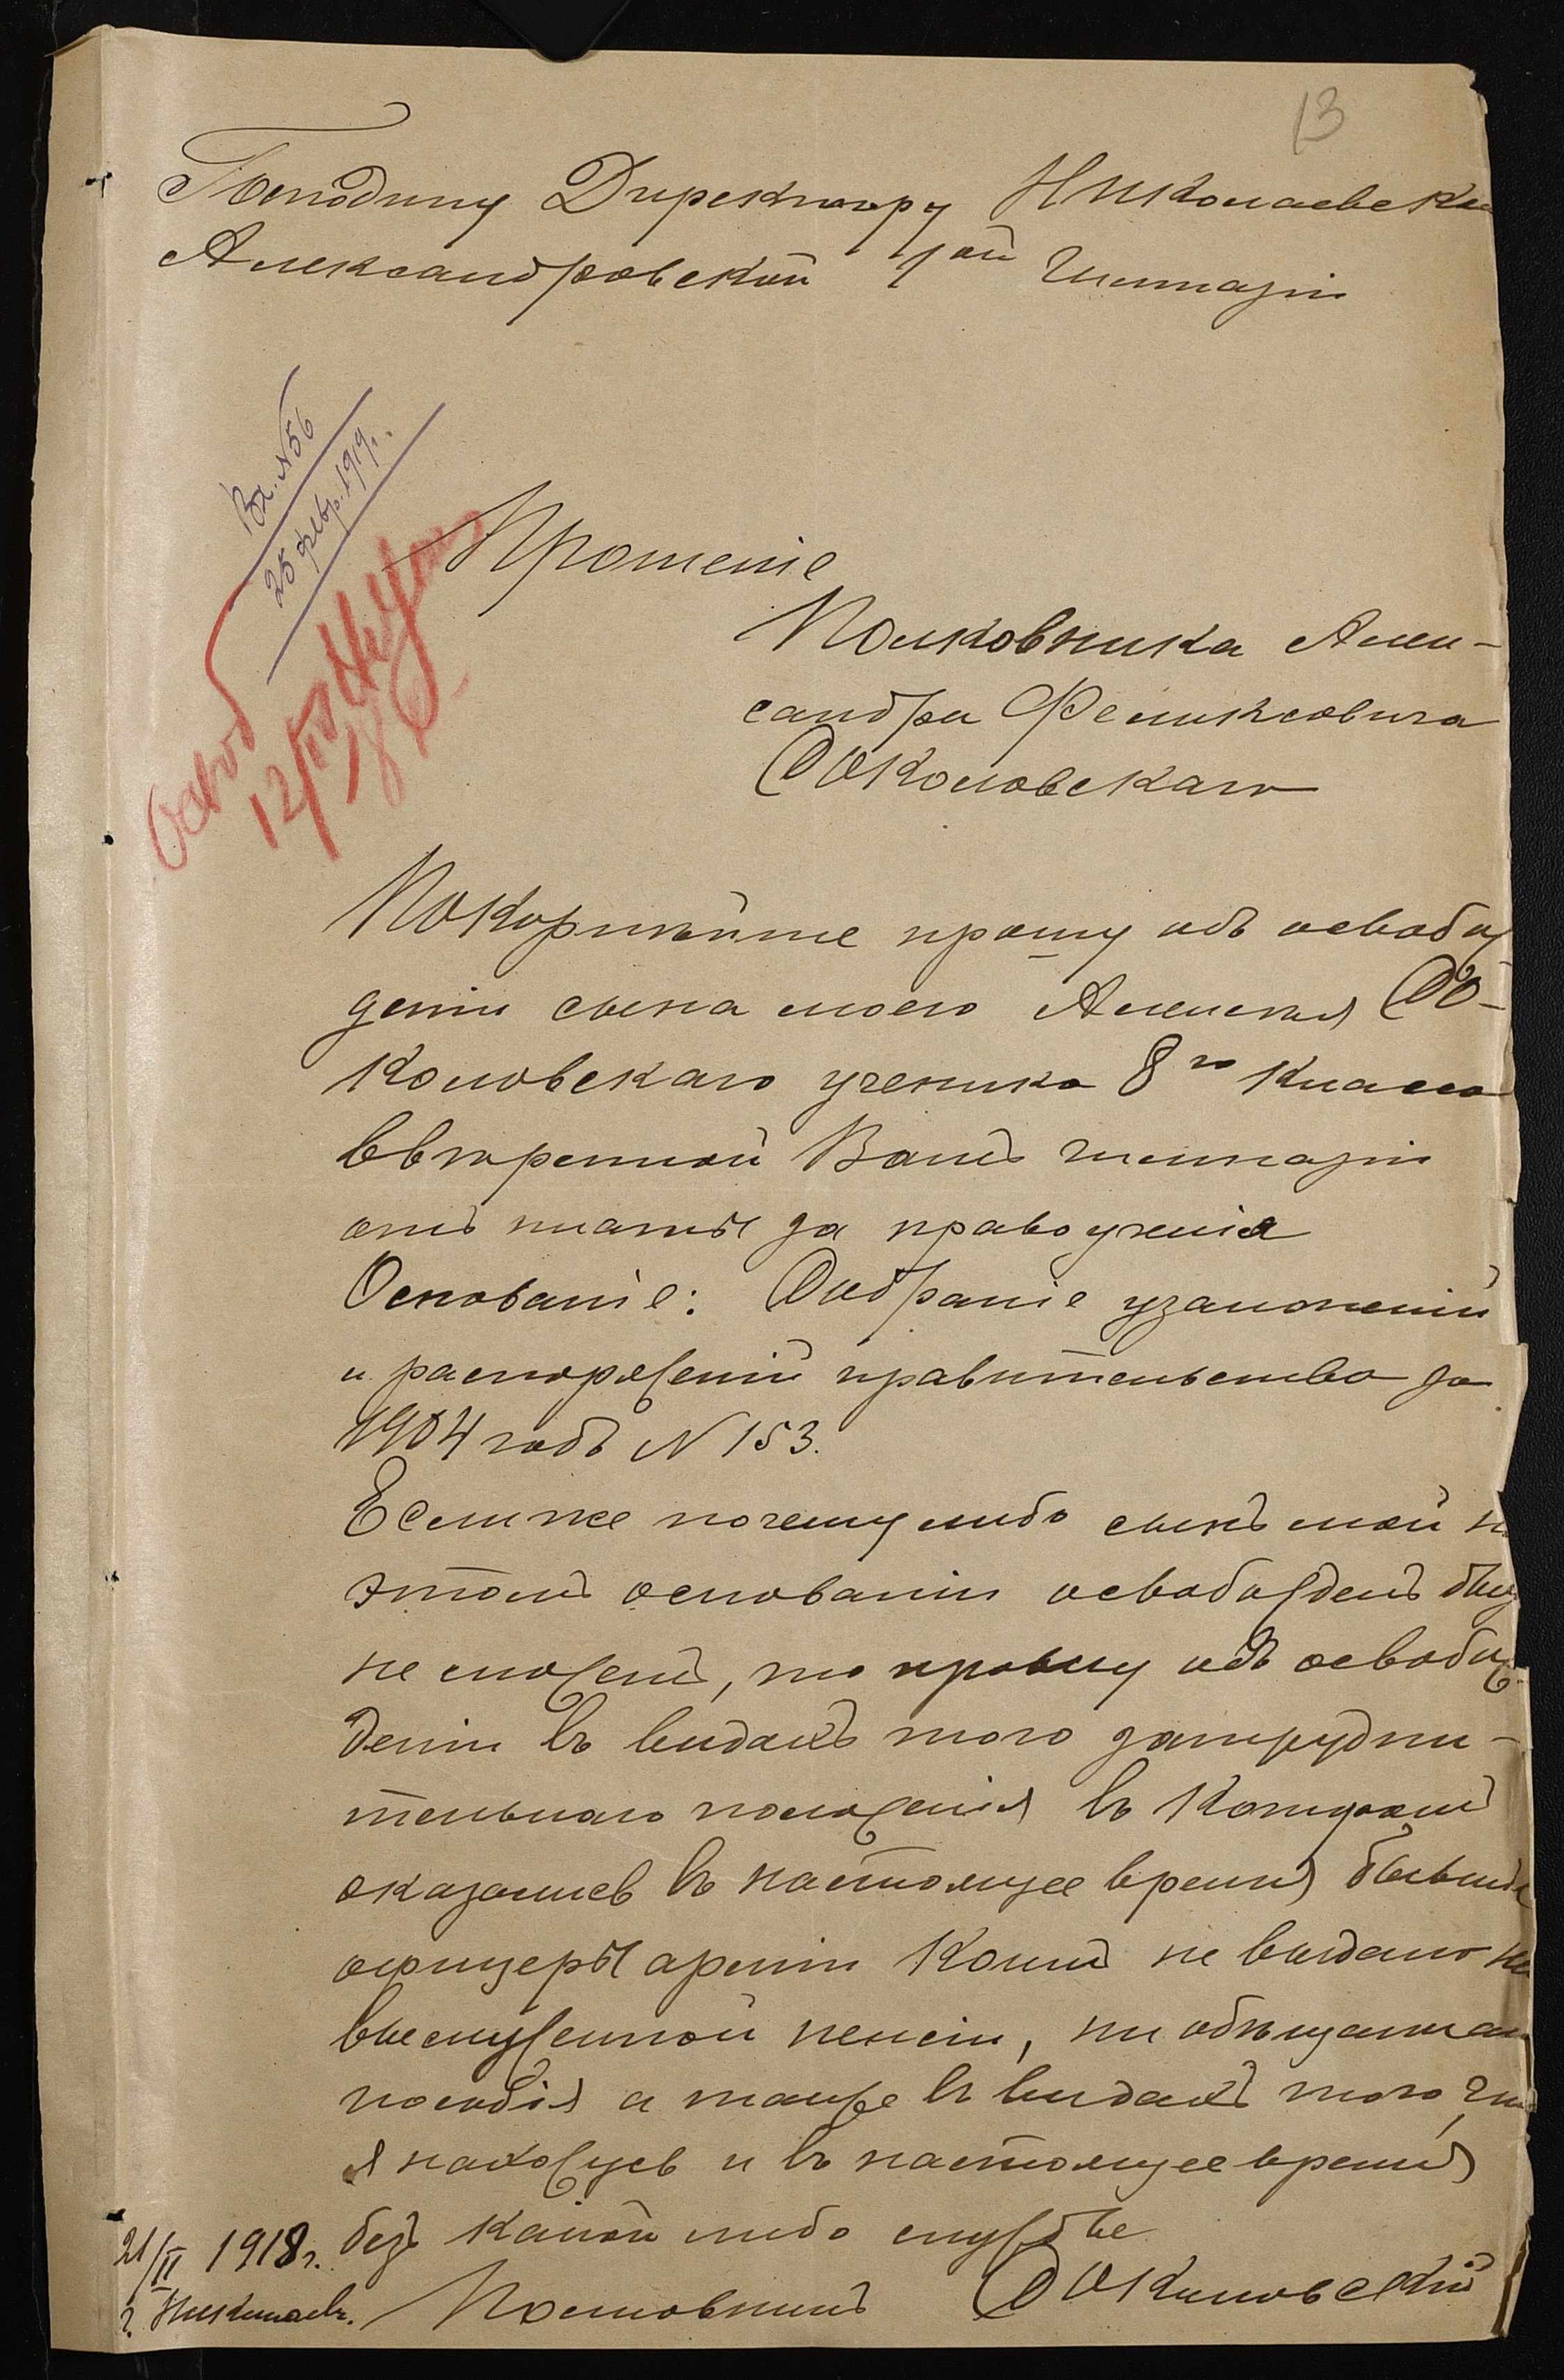 13
Господину Директору Николаевской
Александровской 1ой Гимназіи
Вх. №56
25 февр. 1919г.
Освод
12/III
Прошеніе
Полковника Алек-
сандра Феликсовича
Соколовскаго
Покорнѣйше прошу объ освобож
деніи сына моего Алексѣя Со-
коловскаго ученика 8го класса
ввѣренной Вамъ гимназіи
отъ платы за право ученія
Основаніе: Собраніе узаконеній
и распоряженій правительства за
1904 годъ N 153.
Если же почему либо сынъ мой на
этомъ основаніи освобожденъ быть
не можетъ, то прошу объ освобож-
деніи въ видахъ того затрудни-
тельнаго положенія въ которомъ
оказались въ настоящее время бывшіе
офицеры арміи коимъ не выдано ни
выслуженной пенсіи, ни обѣщаннаго
пособія а также въ видахъ того, что
я нахожусь и въ настоящее время
безъ какой либо службы
21/II 1918г.
г. Николаевъ.
Полковникъ Соколовскій